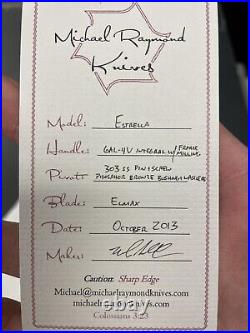 Michael Raymond
Knives
Model: ESTRELLA
Handle: 6AL-4V INTEGRAL W/ FRAME MILLING
Pivot: 303 SS PIN/SCREW
PHOSPHOR BRONZE BUSHING/WASHERS
Blade: ELMAX
Date: OCTOBER 2013
Maker:
Caution: Sharp Edge
Michael@michaelraymondknives.com
michaelraymondknives.com
Colossians 3:23